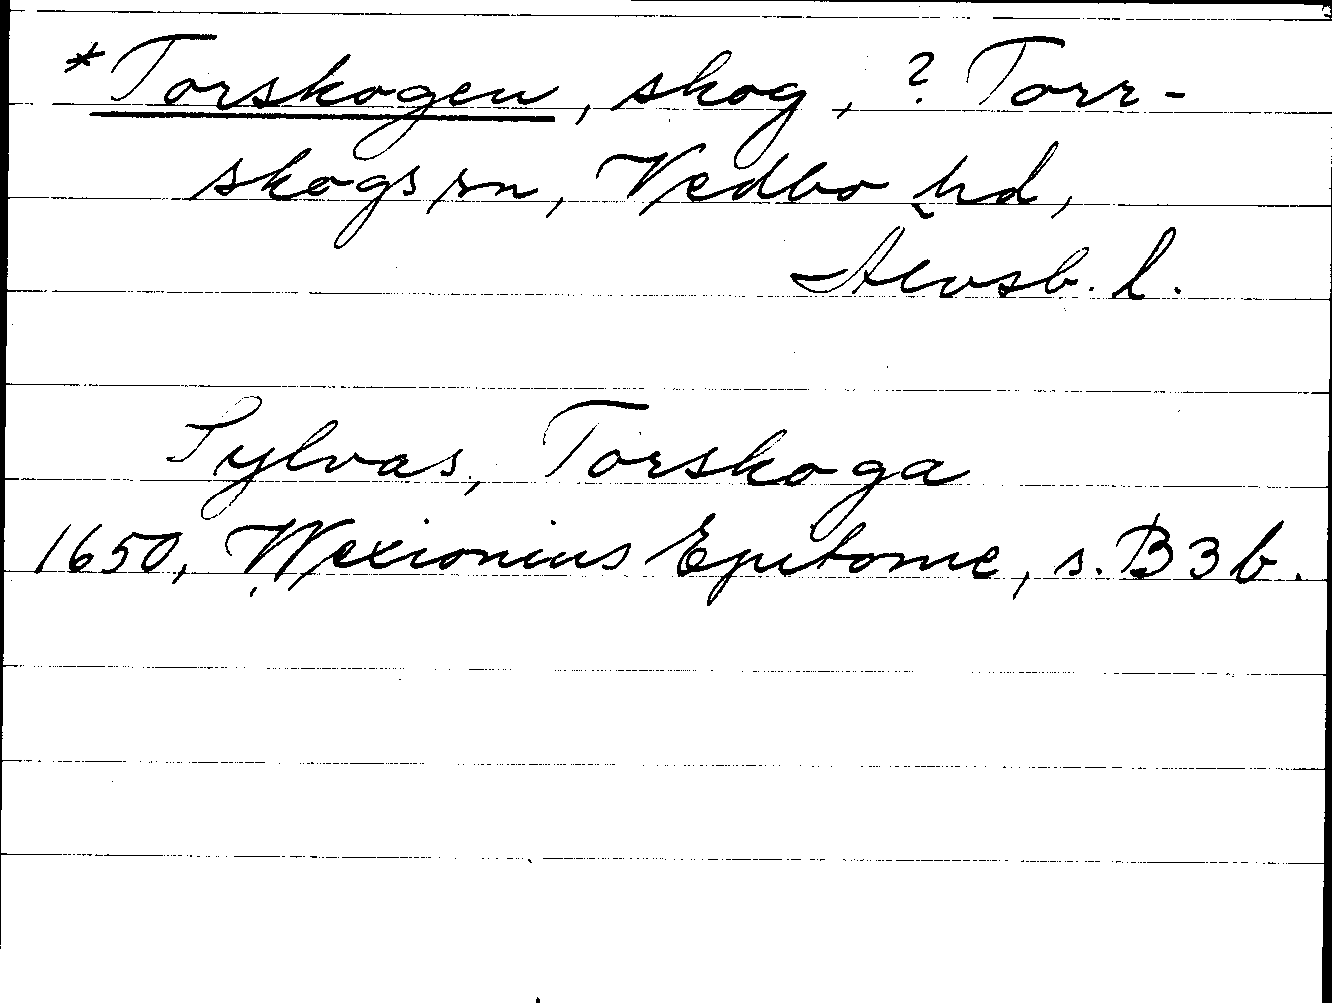 *Torskogen, skog, ? Torr-
skogs sn, Vedbo hd,
Älvsb. l.
Sylvas, Torskoga
1650, Wexionius Epitome, s. B3b.